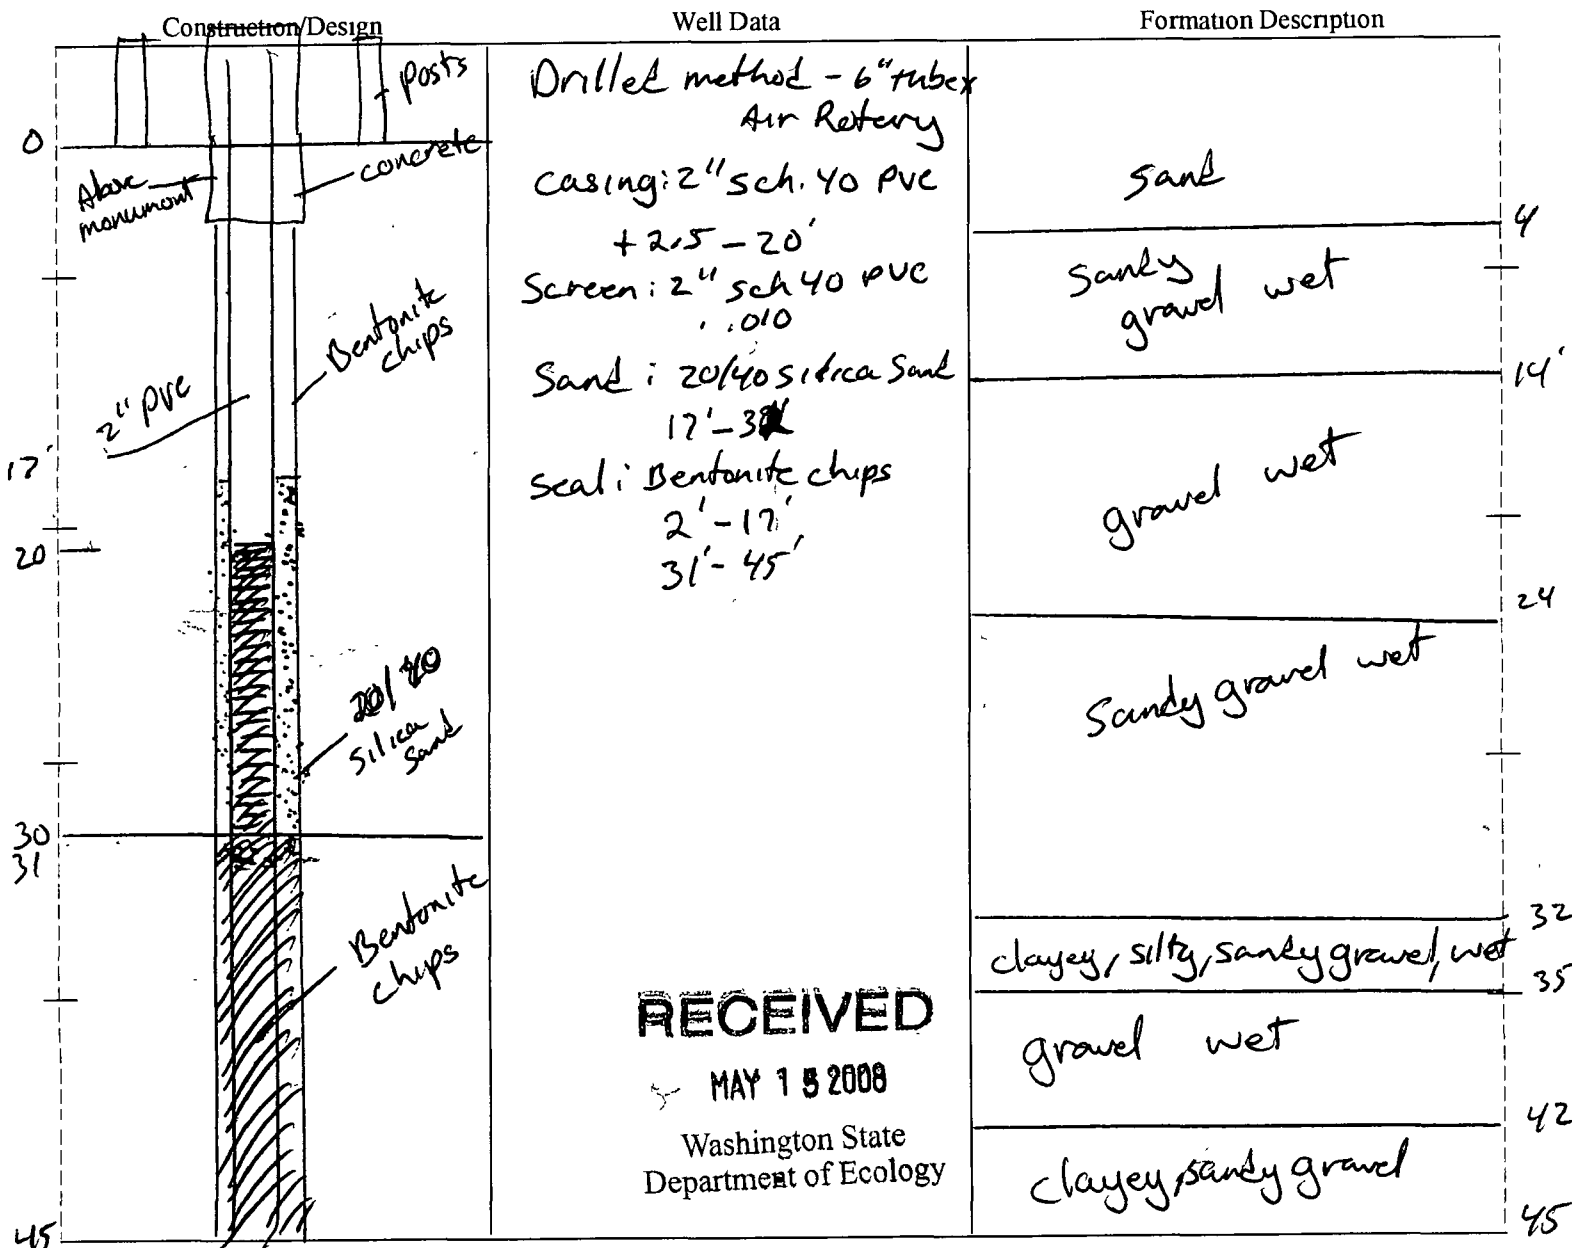 Construction/Design
Well Data
Formation Description
posts
0
Above
monument
concrete
Bentonite
chips
2" PVC
17'
20
20/40
silica
sand
30
31
Bentonite
chips
45
Drilled method - 6" tubex
Air Rotary
Casing: 2" sch. 40 PVC
+2.5 - 20'
Screen: 2" sch 40 PVC
.010
Sand: 20/40 silica Sand
17'-3
Seal: Bentonite chips
2'-17'
31'-45'
RECEIVED
MAY 15 2008
Washington State
Department of Ecology
sand
4
sandy
gravel wet
14'
gravel wet
24
Sandy gravel wet
32
clayey, silty, sandy gravel, wet
35
gravel wet
42
clayey, sandy gravel
45